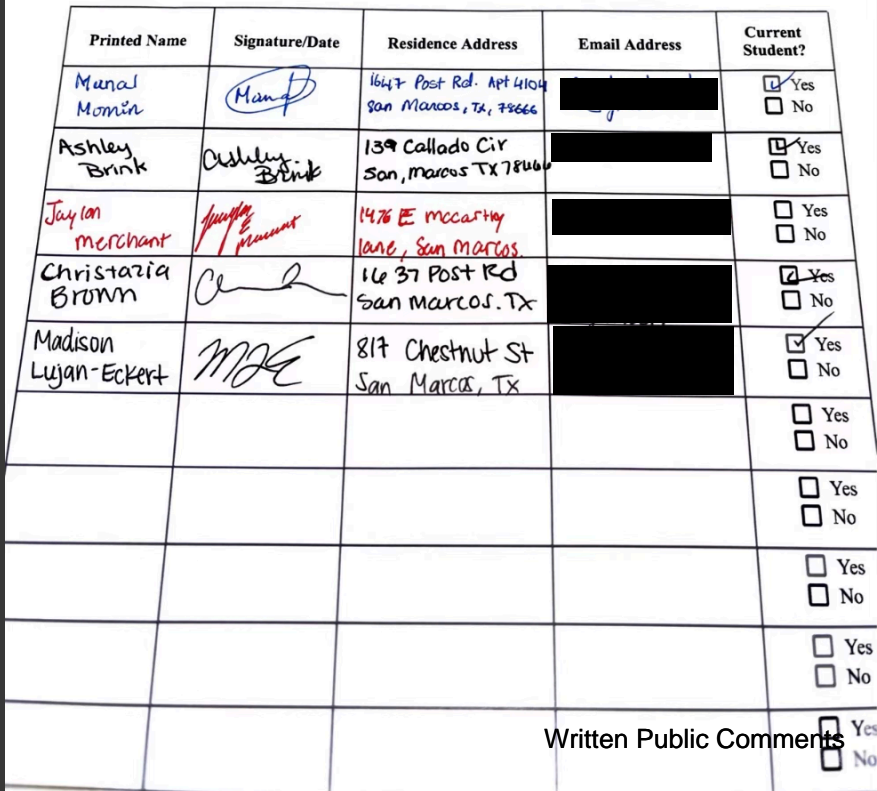 Printed Name Signature/Date Residence Address Email Address Current Student?
Munal Momin Manal 1647 Post Rd. Apt 4104 San Marcos, Tx, 78666 Yes No
Ashley Brink Ashley Brink 139 Callado Cir San, Marcos TX 78666 Yes No
Jaylon merchant 1476 E mccarthy lane, San marcos. Yes No
Christazia Brown 1637 Post Rd San Marcos. TX Yes No
Madison Lujan-Eckert MJE 817 Chestnut St San Marcos, Tx Yes No
Yes
No
Yes
No
Yes
No
Yes
No
Written Public Comments Yes
No